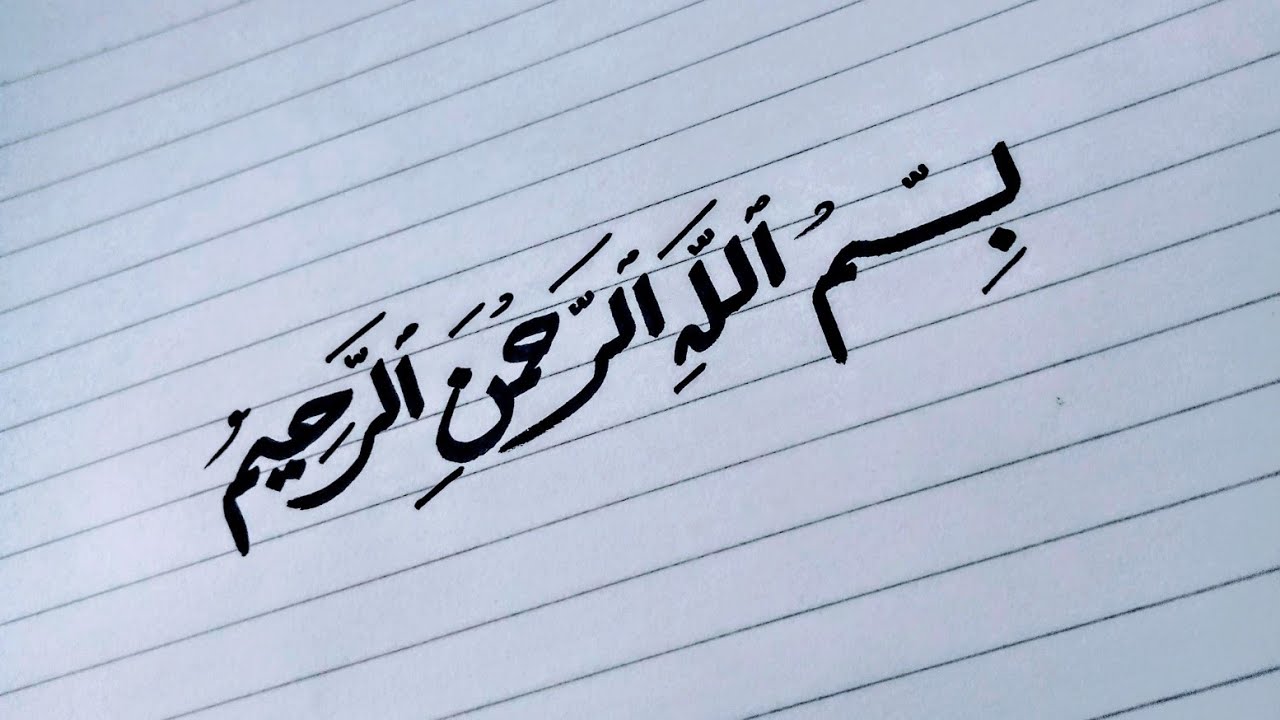 بِسّمُ ٱللَّهِ ٱلرَّحُمَنِ ٱلرَّحِيمُ